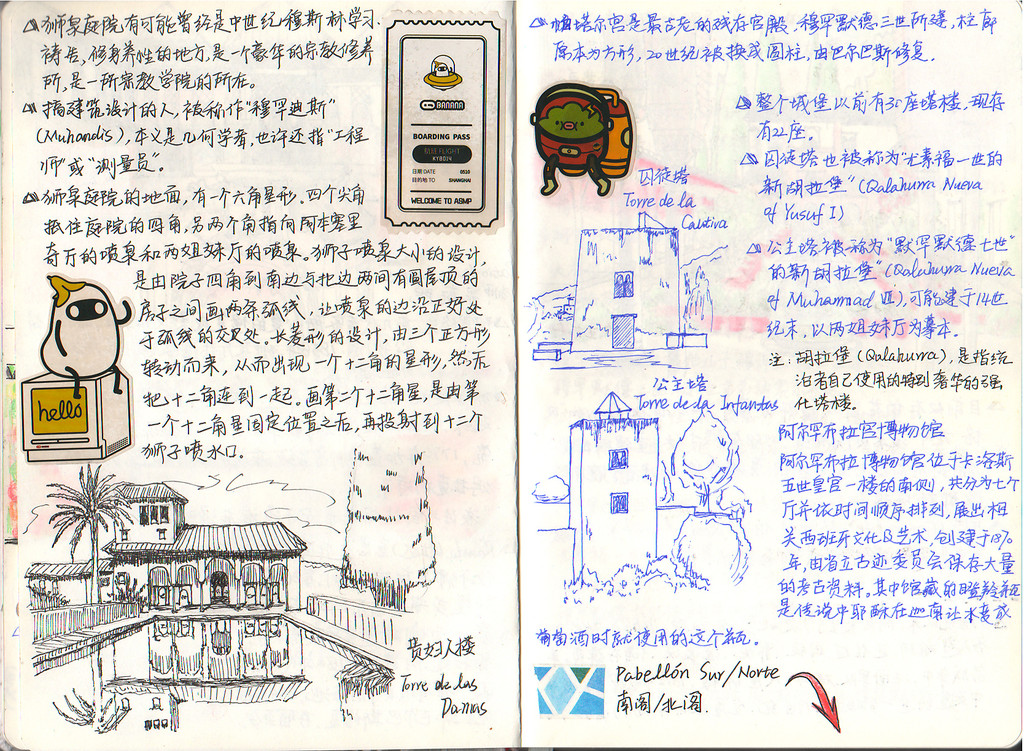 狮泉庭院有可能曾经是中世纪穆斯林学习.
祷告,修身养性的地方.是一个豪华的宗教修养
所,是一所宗教学院的所在。
搞建筑设计的人,被称作"穆罕迪斯"
(Muhandis),本义是几何学者,也许还指"工程
师"或"测量员"。
狮泉庭院的地面,有一个六角星形.四个尖角
抵住庭院的四角,另两个角指向阿本塞里
奇厅的喷泉和两姐妹厅的喷泉。狮子喷泉大小的设计,
是由院子四角到南边与北边两间有圆屋顶的
房子之间画两条弧线,让喷泉的边沿正好处
于弧线的交叉处。长菱形的设计,由三个正方形
转动而来,从而出现一个十二角的星形,然后
把十二角连到一起。画第二个十二角星,是由第
一个十二角星固定位置之后,再投射到十二个
狮子喷水口。
BANANA
BOARDING PASS
航班 FLIGHT
日期 DATE 0510
目的地 TO SHANGHAI
WELCOME TO ASMP
hello
贵妇人楼
Torre de las
Damas
帕塔尔宫是最古老的残存宫殿,穆罕默德三世所建,柱廊
原本为方形,20世纪被换成圆柱,由巴尔巴斯修复.
整个城堡以前有30座塔楼,现存
有22座.
囚徒塔也被称为"尤素福一世的
新胡拉堡"(Qalahurra Nueva
of Yusuf I)
囚徒塔
Torre de la
Cautiva
公主塔被称为"默罕默德七世"
的新胡拉堡"(Qalahurra Nueva
of Muhammad VII),可能建于14世
纪末,以两姐妹厅为摹本.
注:胡拉堡(Qalahurra),是指统
治者自己使用的特别奢华的强
化塔楼。
公主塔
Torre de la Infantas
阿尔罕布拉宫博物馆
阿尔罕布拉博物馆位于卡洛斯
五世皇宫一楼的南侧,共分为七个
厅并依时间顺序排列,展出相
关西班牙文化及艺术,创建于1870
年,由省立古迹委员会保存大量
的考古资料。其中馆藏的瓶
是传说中耶酥在迦南让水变成
葡萄酒时所使用的这个瓶。
Pabellón Sur/Norte
南阁/北阁.